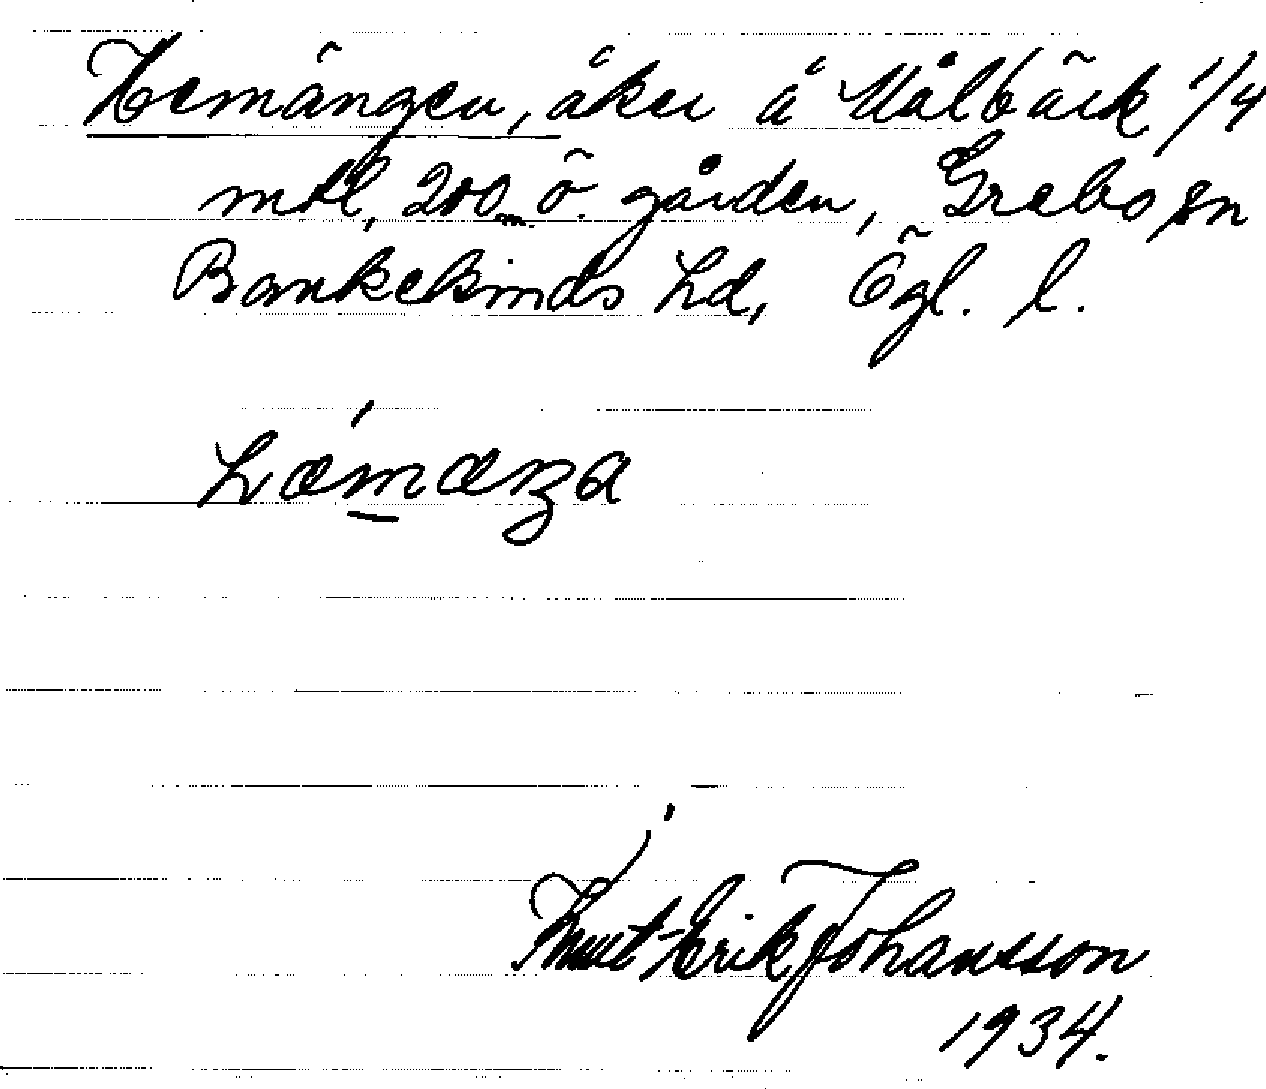 Hemängen, åker å Målbäck 1/4
mtl, 200 m. ö. gården, Grebo sn
Bankekinds hd, Ögl. l.
hæ´mæŋa
Knut-Erik Johansson
1934.